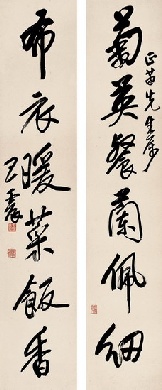 菊英餐蘭佩紉
正苗先生屬
布衣暖菜飯香
王震